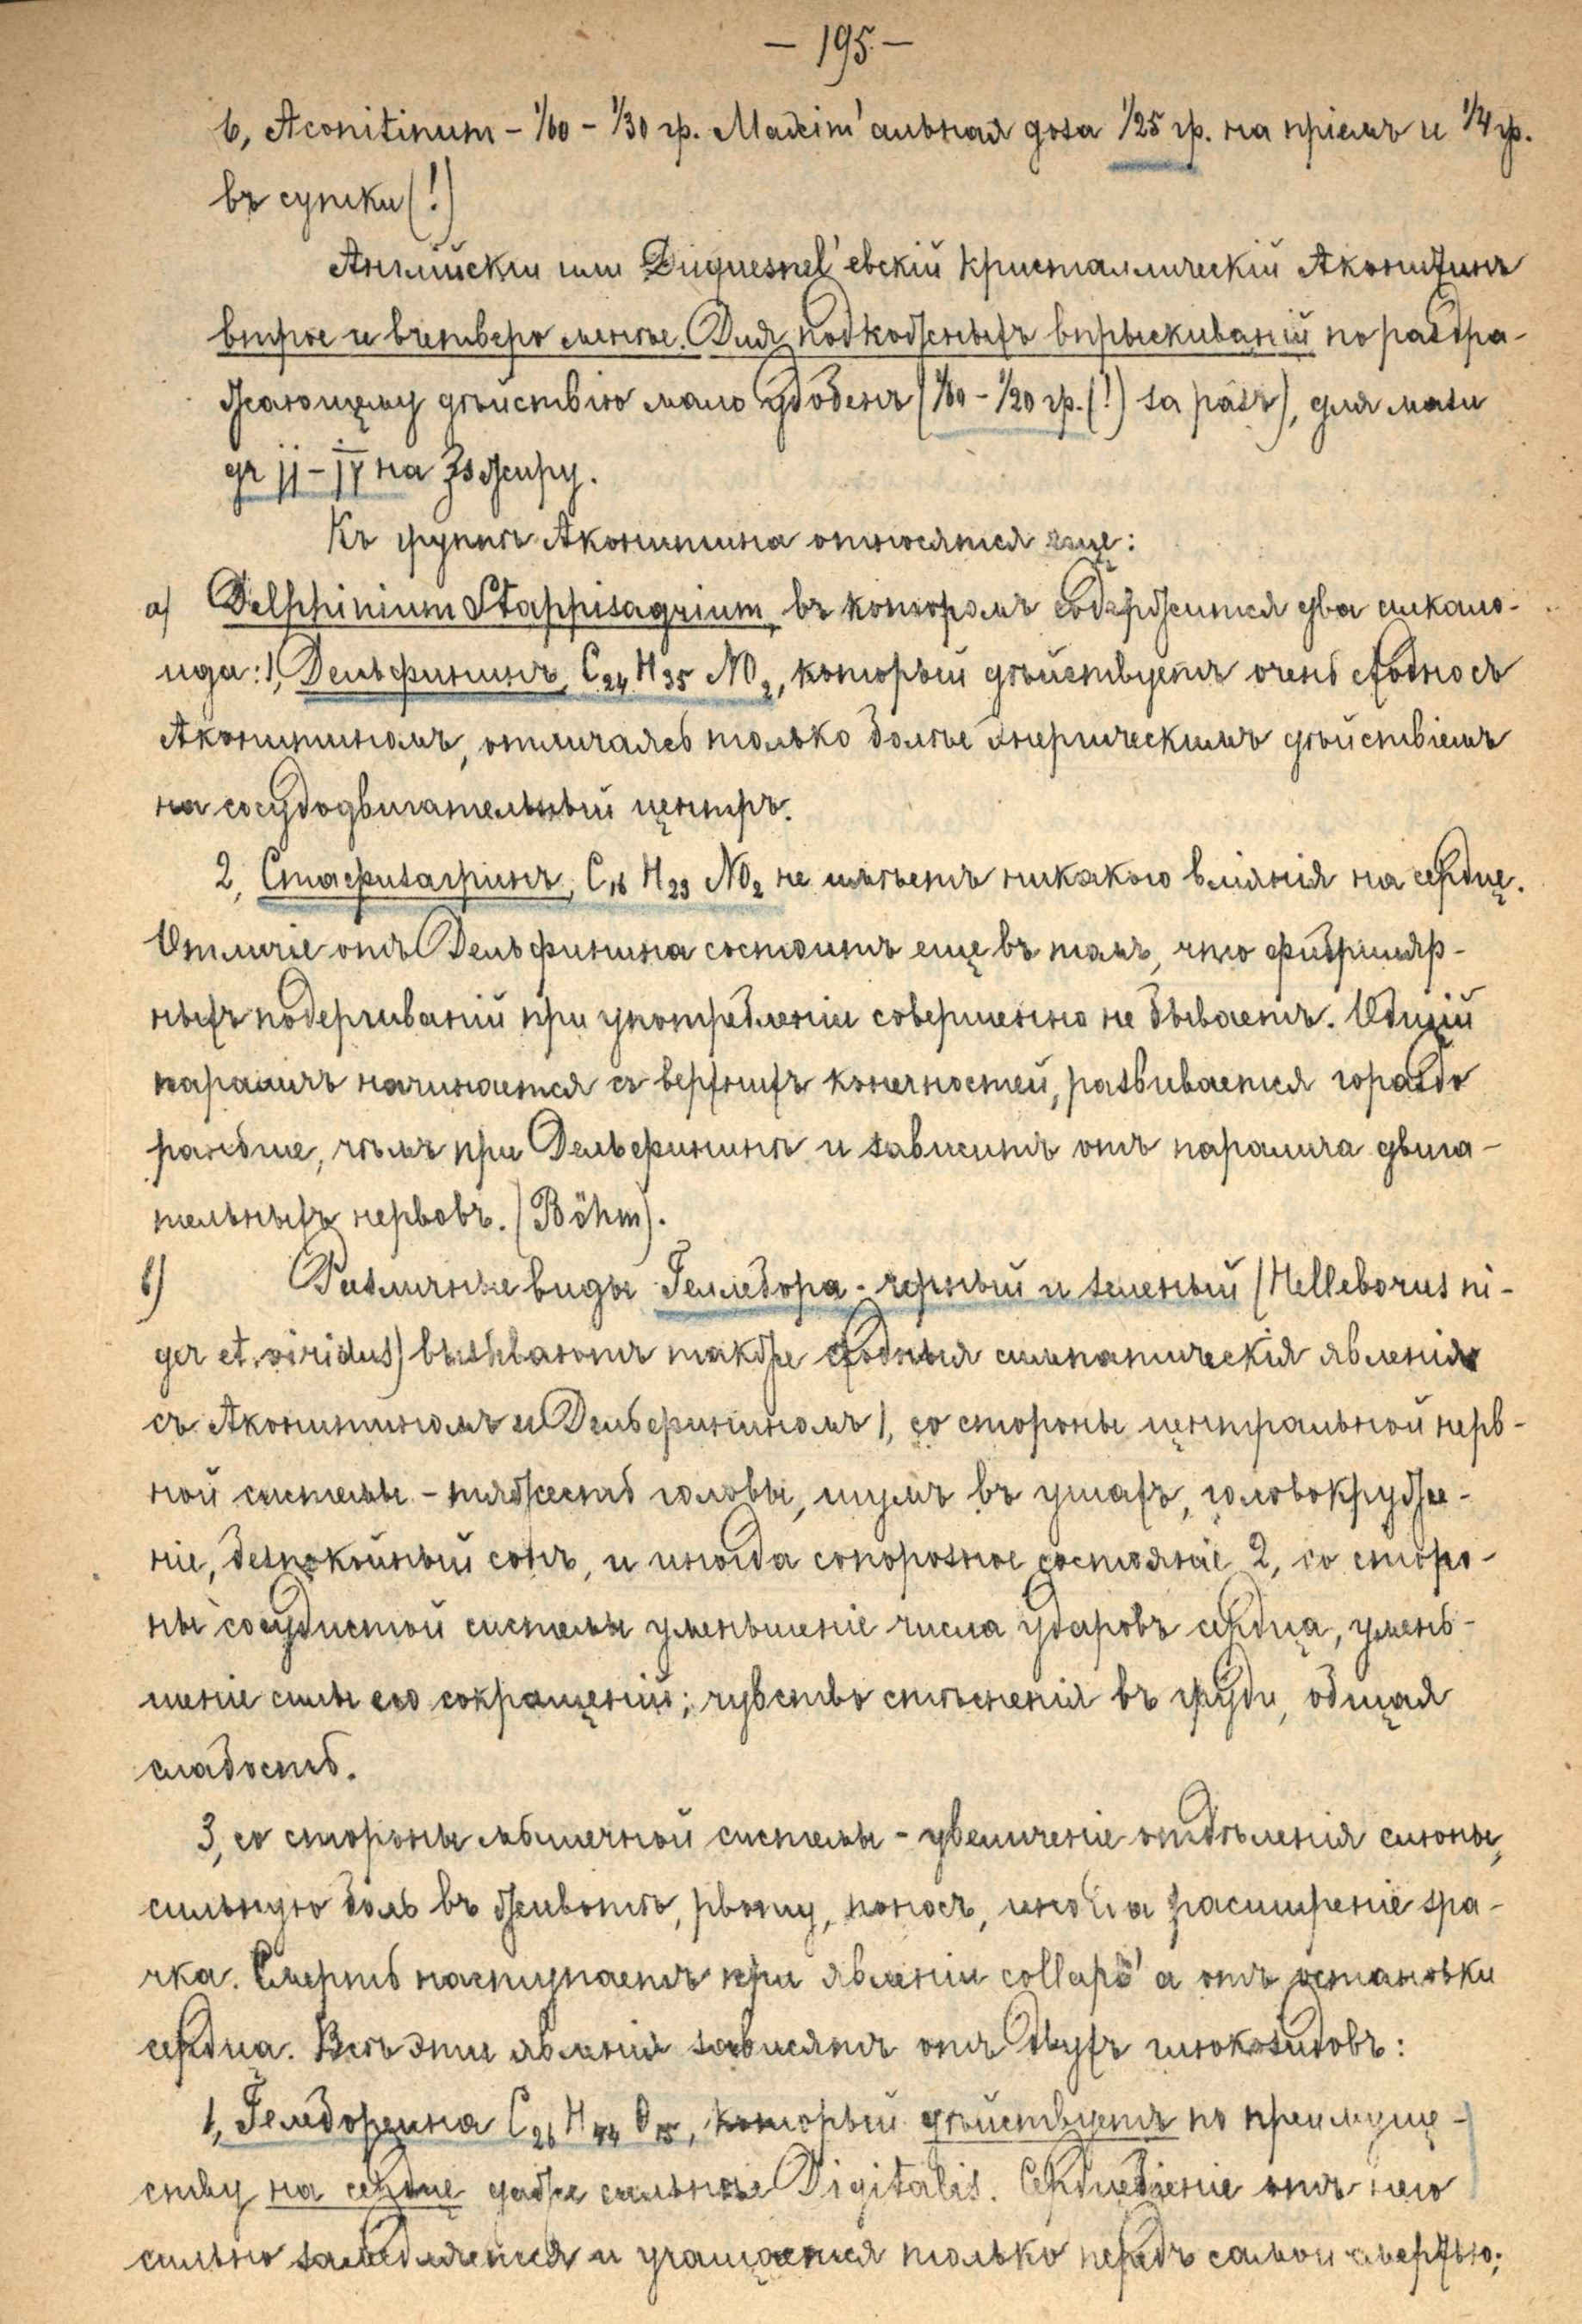 — 195 —
6, Aconitinum – 1/60 – 1/30 гр. Maxim'альная доза 1/25 гр. на пріемъ и 1/4 гр.
въ сутки (!)
Англійскій или Duquesnel'евскій кристаллическій Аконитинъ
втрое и вчетверо менѣе. Для подкожныхъ впрыскиваній по раздра-
жающему дѣйствію мало удобенъ (1/60 – 1/20 гр. (!) за разъ), для мази
gr jj – jv на ʒs жиру.
Къ группѣ Аконитина относятся еще:
a) Delphinium Stapphisagrium, въ которомъ содержится два алкало-
ида: 1, Дельфининъ, C24 H35 NO2, который дѣйствуетъ очень сходно съ
Аконитиномъ, отличаясь только болѣе энергическимъ дѣйствіемъ
на сосудодвигательный центръ.
2, Стафизагринъ, C16 H23 NO2 не имѣетъ никакого вліянія на сердце.
Отличіе отъ Дельфинина состоитъ еще въ томъ, что фибрилляр-
ныхъ подергиваній при употребленіи совершенно не бываетъ. Общій
параличъ начинается съ верхнихъ конечностей, развивается гораздо
раньше, чѣмъ при Дельфининѣ и зависитъ отъ паралича двига-
тельныхъ нервовъ. (Böhm).
b) Различные виды Геллебора - черный и зеленый (Helleborus ni-
ger et viridus) вызываютъ также сходныя симпатическія явленія
съ Аконитиномъ и Дельфининомъ 1, со стороны центральной нерв-
ной системы – тяжесть головы, шумъ въ ушахъ, головокруже-
ніе, безпокойный сонъ, и иногда сопорозное состояніе 2, со сторо-
ны сосудистой системы уменьшеніе числа ударовъ сердца, умень-
шеніе силы его сокращеній; чувство стѣсненія въ груди, общая
слабость.
3, со стороны мышечной системы – увеличеніе отдѣленія слюны,
сильную боль въ животѣ, рвоту, поносъ, иногда расширеніе зра-
чка. Смерть наступаетъ при явленіи collaps'а отъ остановки
сердца. Всѣ эти явленія зависятъ отъ двухъ глюкозидовъ:
1, Гелебореина C26 H44 O15, который дѣйствуетъ по преимуще-
ству на сердце даже сильнѣе Digitalis. Сердцебіеніе отъ него
сильно замедляется и учащается только передъ самой смертью;